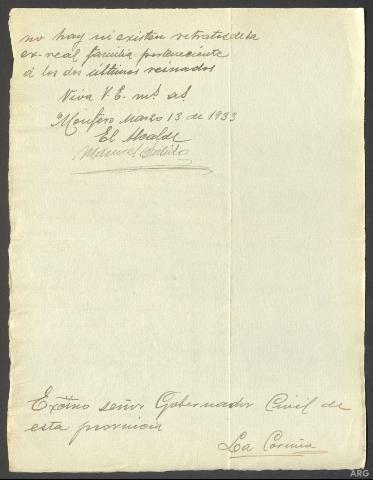 no hay ni existen retratos de la
ex-real familia perteneciente
á los dos últimos reinados
Viva V. E. ms. as.
Monfero Marzo 13 de 1933
El Alcalde
Manuel
Excmo señor Gobernador Civil de
esta provincia
La Coruña
ARG